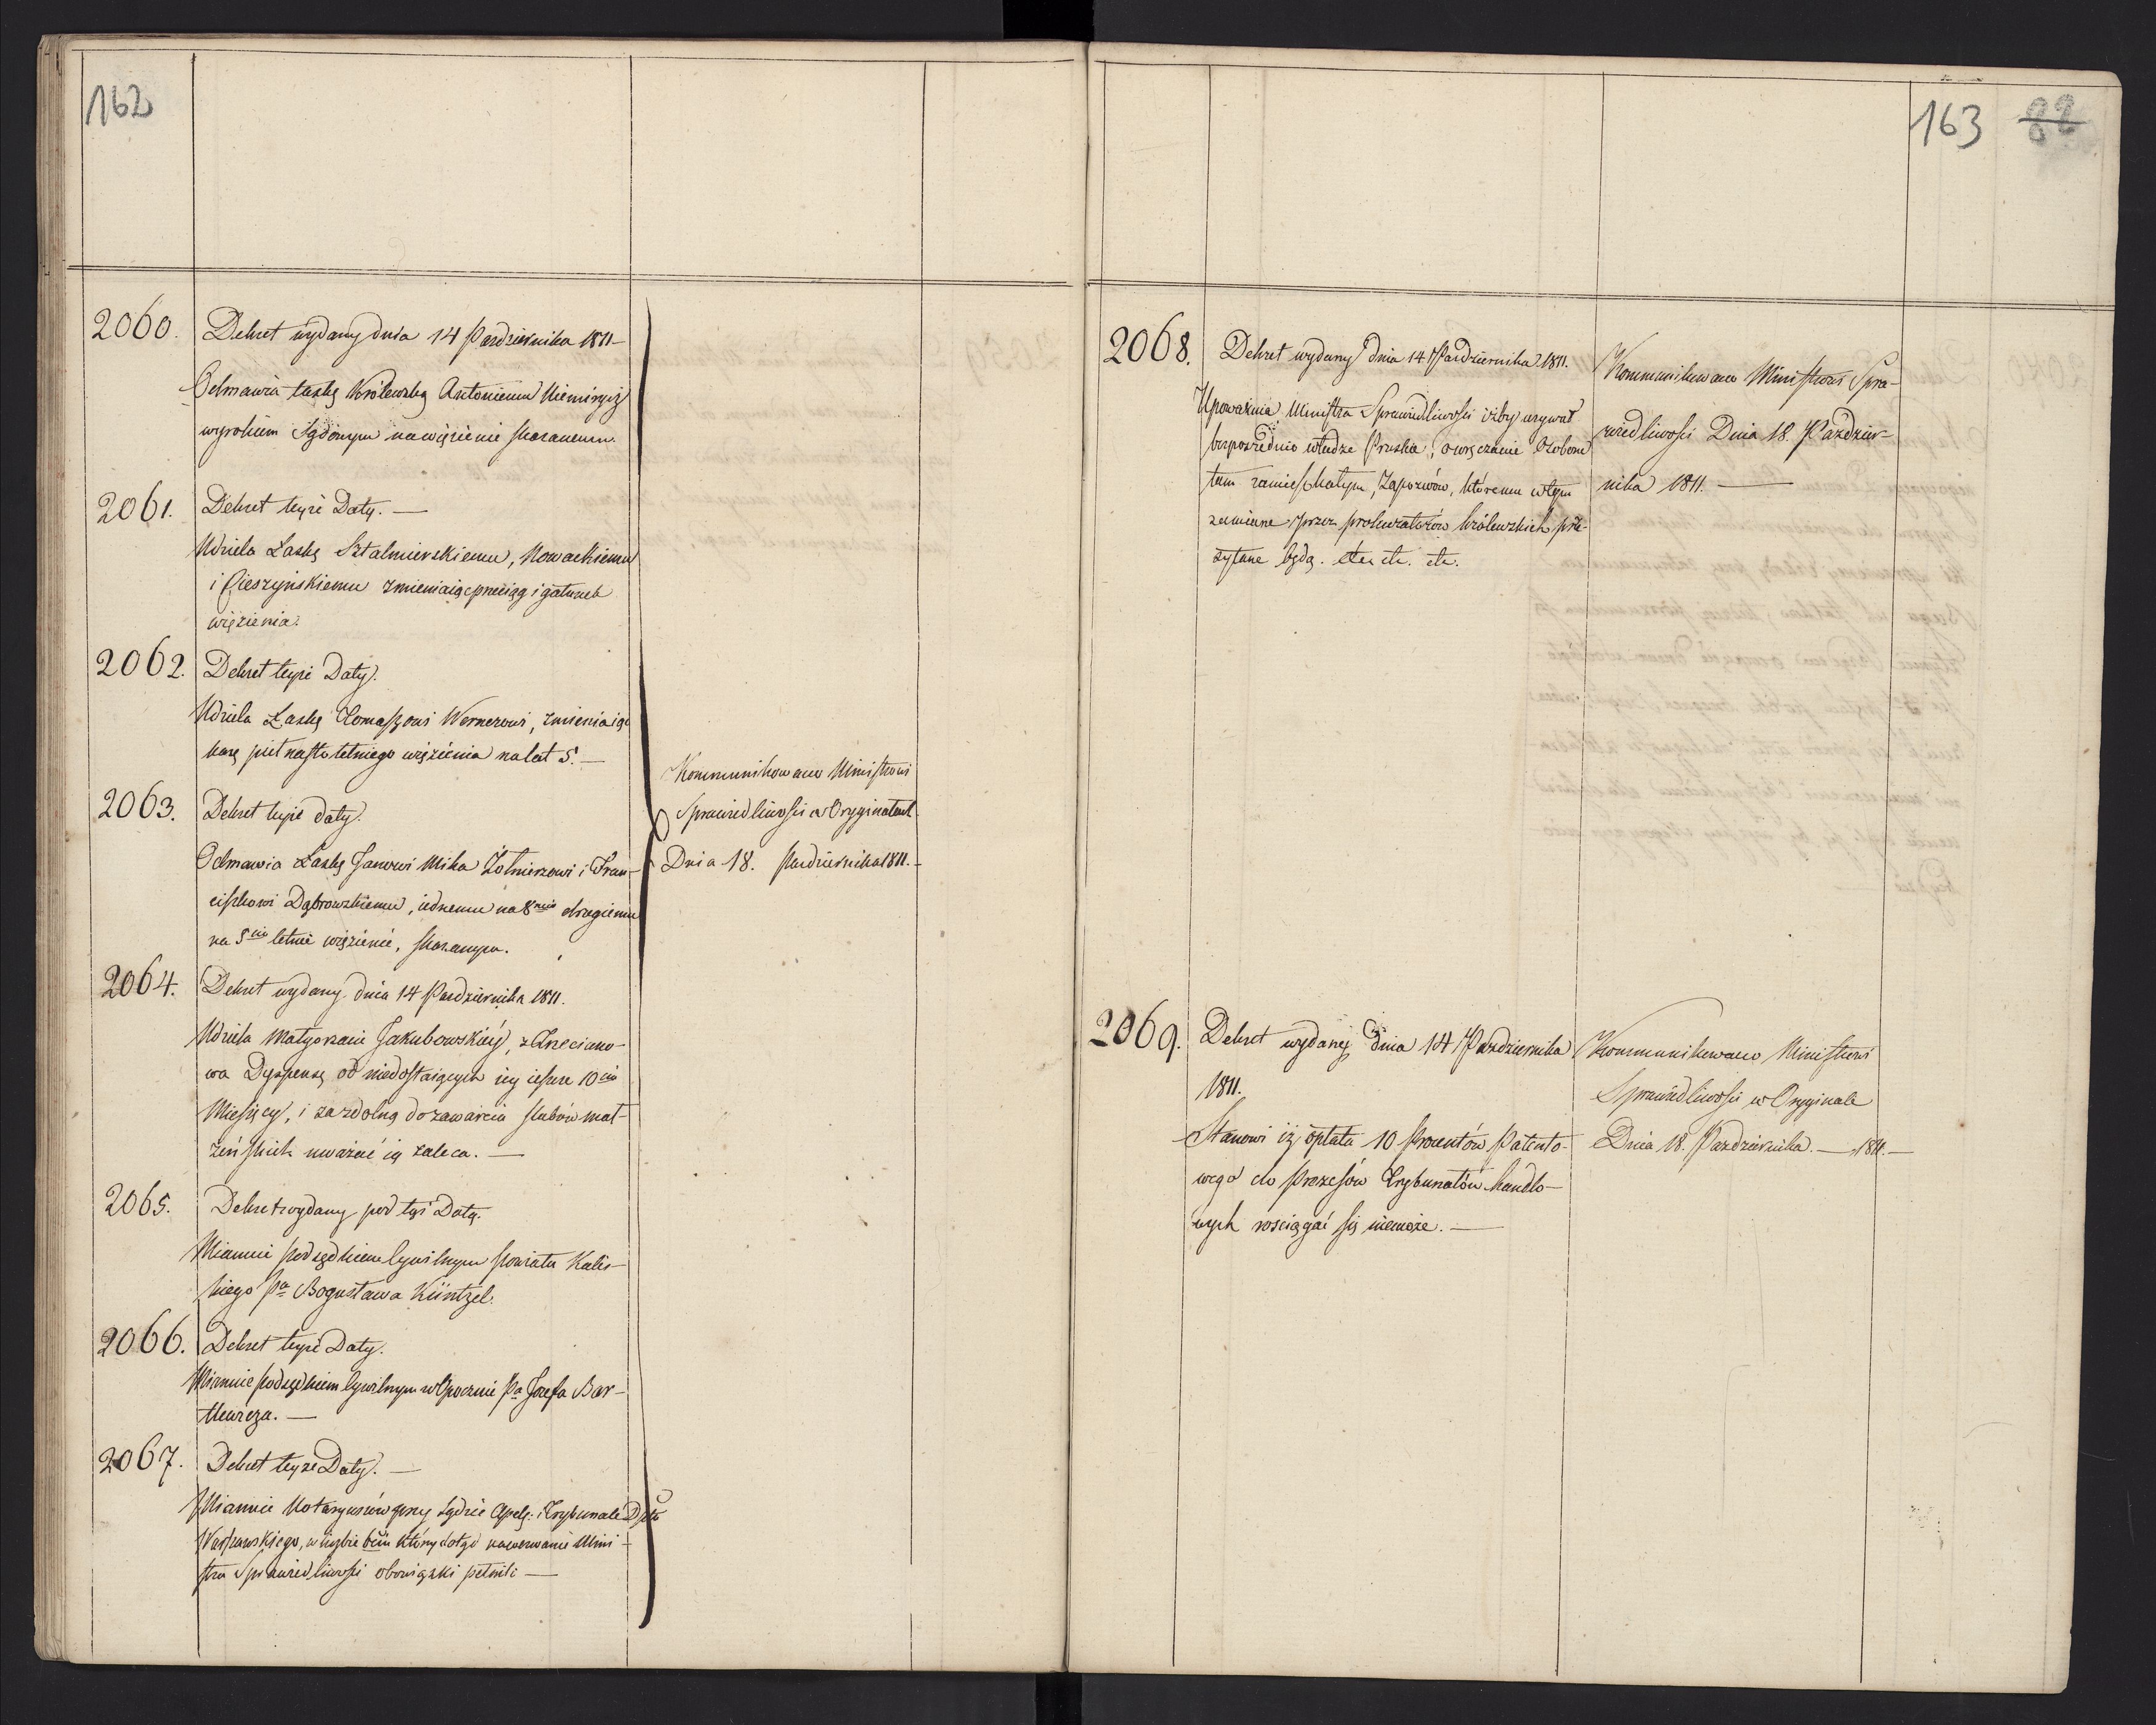 162
2060.
Dekret wydany dnia 14 Pazdziernika 1811 —
Odmawia łaskę Królewską Antoniemu Niemirycz
wyrokiem Sądowym na więzienie skazanemu.
2061.
Dekret teyże Daty. —
Udziela Łaskę Sztalmierskiemu, Nowackiemu
i Cieszyńskiemu zmieniaiąc przeciąg i gatunek
więzienia.
2062.
Dekret teyże Daty.
Udziela Łaskę Tomaszowi Wernerowi, zmieniaiąc
karę piętnasto letniego więzienia na lat 5. —
2063.
Dekret teyże daty.
Odmawia Łaskę Janowi Mika Żołnierzowi i Fran-
ciszkowi Dąbrowskiemu, iednemu na 8mio drugiemu
na 5cio letnie więzienie, skazanym.
Kommunikowano Ministrowi
Sprawiedliwości w Oryginałach
Dnia 18. Pazdziernika 1811. —
2064.
Dekret wydany dnia 14 Pazdziernika 1811.
Udziela Małgorzacie Jakubowskiéy, z Trzeciano-
wa Dyspensę od niedostaiących iey ieszcze 10cio
Miesięcy, i za zdolną do zawarcia ślubów mał-
żeńskich uważać ią zaleca. —
2065.
Dekret wydany pod tąż Datą.
Mianuie Podsędkiem Cywilnym Powiatu Kalis-
kiego Pa Bogusława Küntzel.
2066.
Dekret teyże Daty.
Mianuie Podsędkiem Cywilnym w Opocznie Pa Jozefa Bar-
tkewicza. —
2067.
Dekret teyże Daty. —
Mianuie Notaryuszów przy Sądzie Apelą: i Trybunale Dptu
Warszawskiego, w liczbie 6ciu którzy dotąd na wezwanie Mini-
stra Sprawiedliwości obowiązki pełnili —
163 82
2068.
Dekret wydany dnia 14 Pazdziernika 1811.
Upoważnia Ministra Sprawiedliwości iżby wzywał
bezpośrednio władze Pruskie, o wręczanie Osobom
tam zamieszkałym, Zapozwów, któremu w tym
zamiarze przez prokuratorów królewskich prze-
syłane będą. etc. etc. etc.
Kommunikowano Ministrowi Spra-
wiedliwości Dnia 18. Pazdzier-
nika 1811. —
2069.
Dekret wydany dnia 14 Pazdziernika
1811.
Stanowi iż opłata 10 Procentów Patento-
wego do Prezesów Trybunałów handlo-
wych rosciągać się niemoże. —
Kommunikowano Ministrowi
Sprawiedliwości w Oryginale
Dnia 18. Pazdziernika. — 1811. —